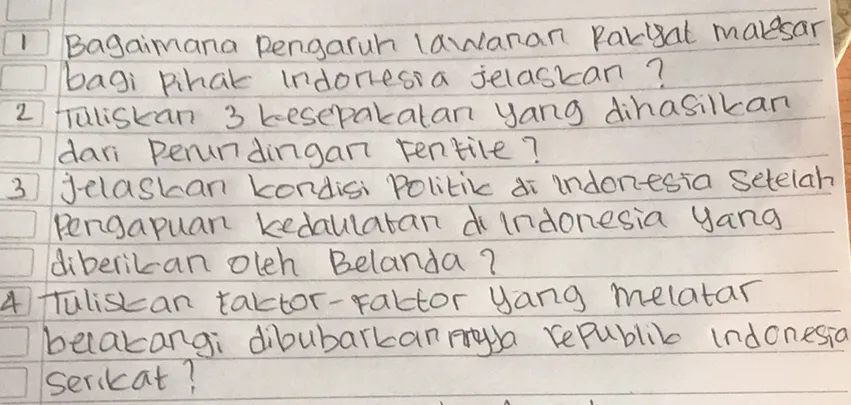 1 Bagaimana pengaruh lawanan Rakyat makasar
bagi pihak Indonesia jelaskan ?
2 Tuliskan 3 kesepakatan yang dihasilkan
dari perundingan renfile ?
3 Jelaskan kondisi Politik di Indonesia Setelah
pengapuan kedaulatan di Indonesia yang
diberikan oleh Belanda ?
4 Tuliskan faktor-faktor yang melatar
belakangi dibubarkan republik indonesia
serikat ?